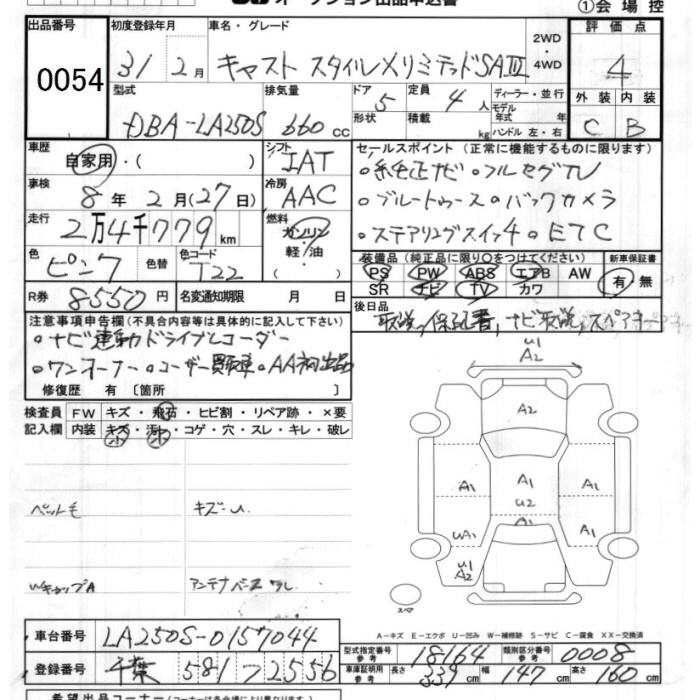 オークション出品申込書
①会場控
出品番号 初度登録年月 車名・グレード 2WD・4WD 評価点
0054 31 2月 キャスト スタイルXリミテッドSAⅢ 4
型式 排気量 ドア 定員 ディーラー・並行 外装 内装
DBA-LA250S 660cc 5 4人 モデル年式 年 C B
形状 積載 kg ハンドル 左・右
車歴 シフト セールスポイント (正常に機能するものに限ります)
自家用・( ) IAT ○純正ナビ ○フルセグTV
車検 冷房 ○ブルートゥース ○バックカメラ
8年2月(27日) AAC ○ステアリングスイッチ ○ETC
走行 燃料
2万4千779km ガソリン・軽油・( )
色 色替 色コード 装備品(純正品に限り○をつけてください) 新車保証書
ピンク T22 PS PW ABS エアB AW 有・無
SR ナビ TV カワ
R券 8550円 名変通知期限 月 日
後日品 取説、保証書、ナビ取説、スペアキー
注意事項申告欄(不具合内容等は具体的に記入して下さい)
○ナビ連動ドライブレコーダー
○ワンオーナー ○ユーザー買取車 ○AA初出品
修復歴 有〔箇所 〕
検査員記入欄 FW キズ・飛石・ヒビ割・リペア跡・×要
内装 キズ・汚れ・コゲ・穴・スレ・キレ・破レ
小 小
U1
A2
A2
A1 A1 A1
U2
UA1 A1 A1
U1
A2
スペア
ペット毛 キズ-U
WキャップA アンテナベースワレ
A-キズ E-エクボ U-凹み W-補修跡 S-サビ C-腐食 XX-交換済
車台番号 LA250S-0157044
登録番号 千葉 581 ワ 2556
型式指定番号 参考 18164 類別区分番号 参考 0008
車庫証明用 参考 長さ 339cm 幅 147cm 高さ 160cm
希望出品コーナー(コーナーは各会場により異なります)